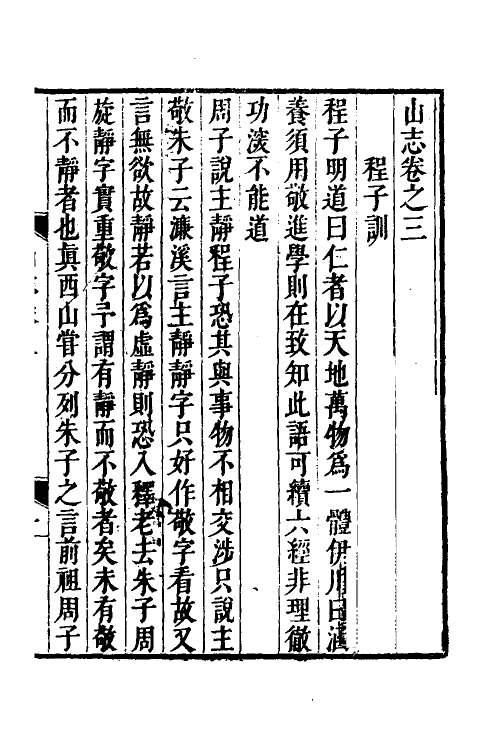 山志卷之三
程子訓
程子明道曰仁者以天地萬物爲一體伊川曰涵
養須用敬進學則在致知此語可續六經非理徹
功淡不能道
周子說主靜程子恐其與事物不相交涉只說主
敬朱子云濂溪言主靜靜字只好作敬字看故又
言無欲故靜若以爲虛靜則恐入釋老去朱子周
旋靜字實重敬字予謂有靜而不敬者矣未有敬
而不靜者也眞西山嘗分列朱子之言前祖周子